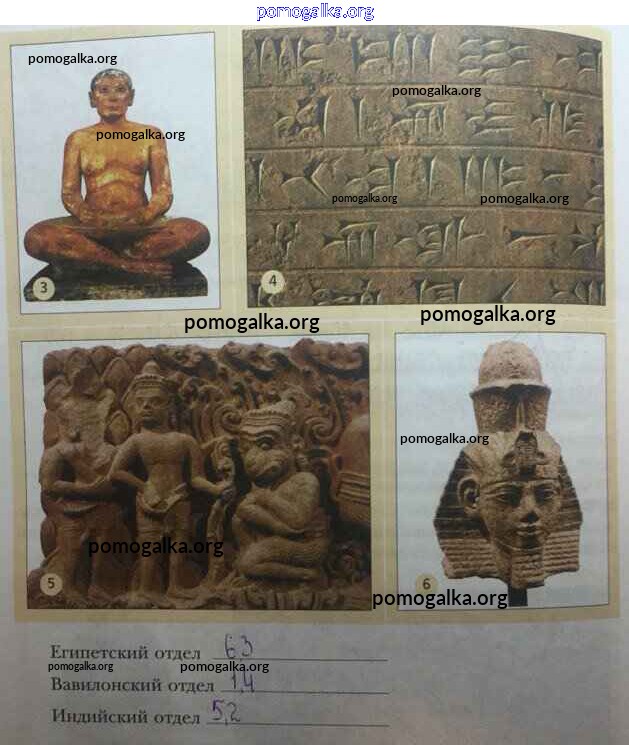 pomogalka.org
pomogalka.org
pomogalka.org
pomogalka.org
pomogalka.org
pomogalka.org
3
4
pomogalka.org
pomogalka.org
pomogalka.org
pomogalka.org
5
6
pomogalka.org
Египетский отдел 6,3
pomogalka.org pomogalka.org
Вавилонский отдел 1,4
Индийский отдел 5,2